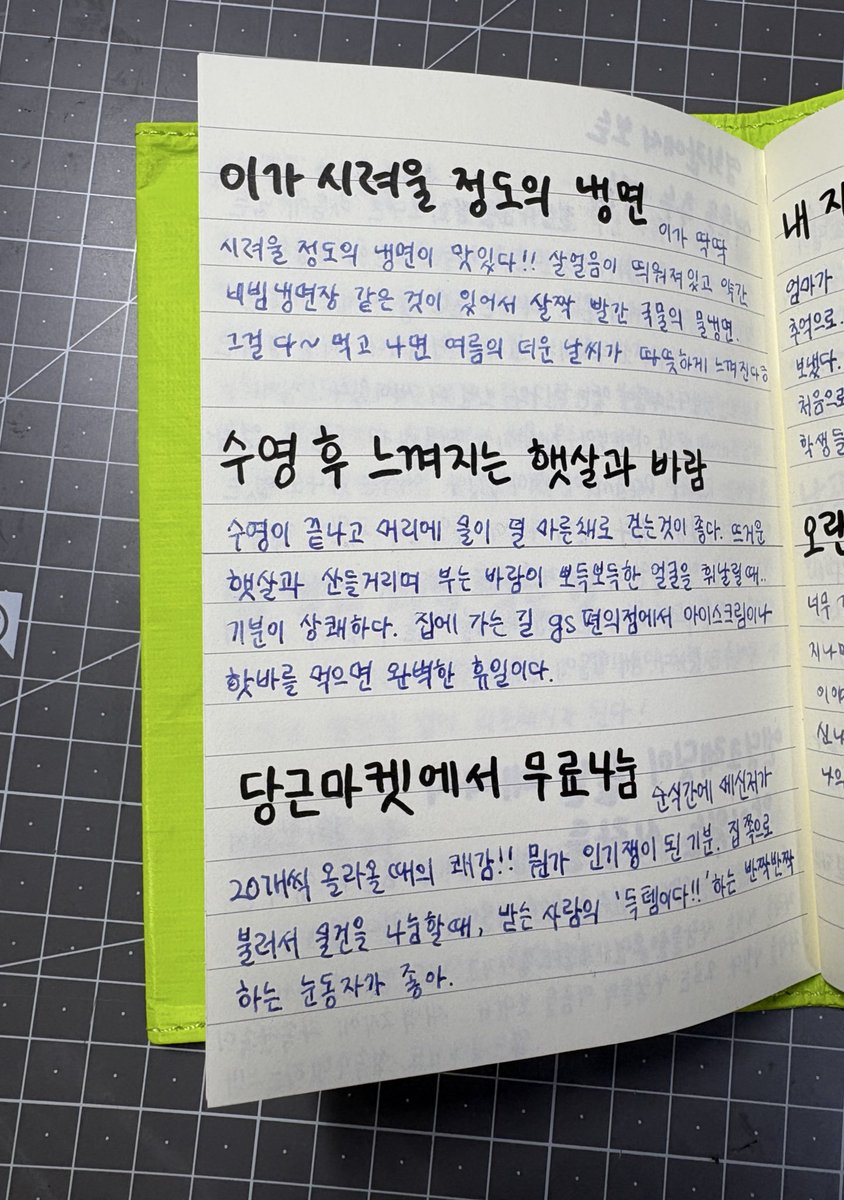 이가 시려울 정도의 냉면
이가 딱딱
시려울 정도의 냉면이 맛있다!! 살얼음이 띄워져있고 약간
비빔냉면장 같은 것이 있어서 살짝 빨간 국물의 물냉면.
그걸 다~ 먹고 나면 여름의 더운 날씨가 따뜻하게 느껴진다ㅎ
수영 후 느껴지는 햇살과 바람
수영이 끝나고 머리에 물이 덜 마른채로 걷는것이 좋다. 뜨거운
햇살과 산들거리며 부는 바람이 뽀득뽀득한 얼굴을 휘날릴때..
기분이 상쾌하다. 집에 가는 길 gs편의점에서 아이스크림이나
핫바를 먹으면 완벽한 휴일이다.
당근마켓에서 무료나눔
순식간에 메신저가
20개씩 올라올 때의 쾌감!! 뭔가 인기쟁이 된 기분. 집쪽으로
불러서 물건을 나눔할때, 받는 사람의 '득템이다!!' 하는 반짝반짝
하는 눈동자가 좋아.
내
엄마가
추억으로.
보냈다.
처음으로
학생들
너무